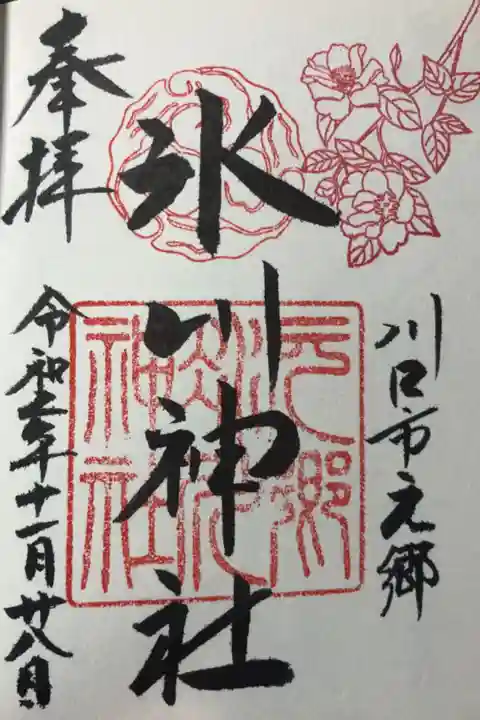 川口市元郷
氷川神社
元郷
氷川
神社
奉拝
令和年十一月廿八日